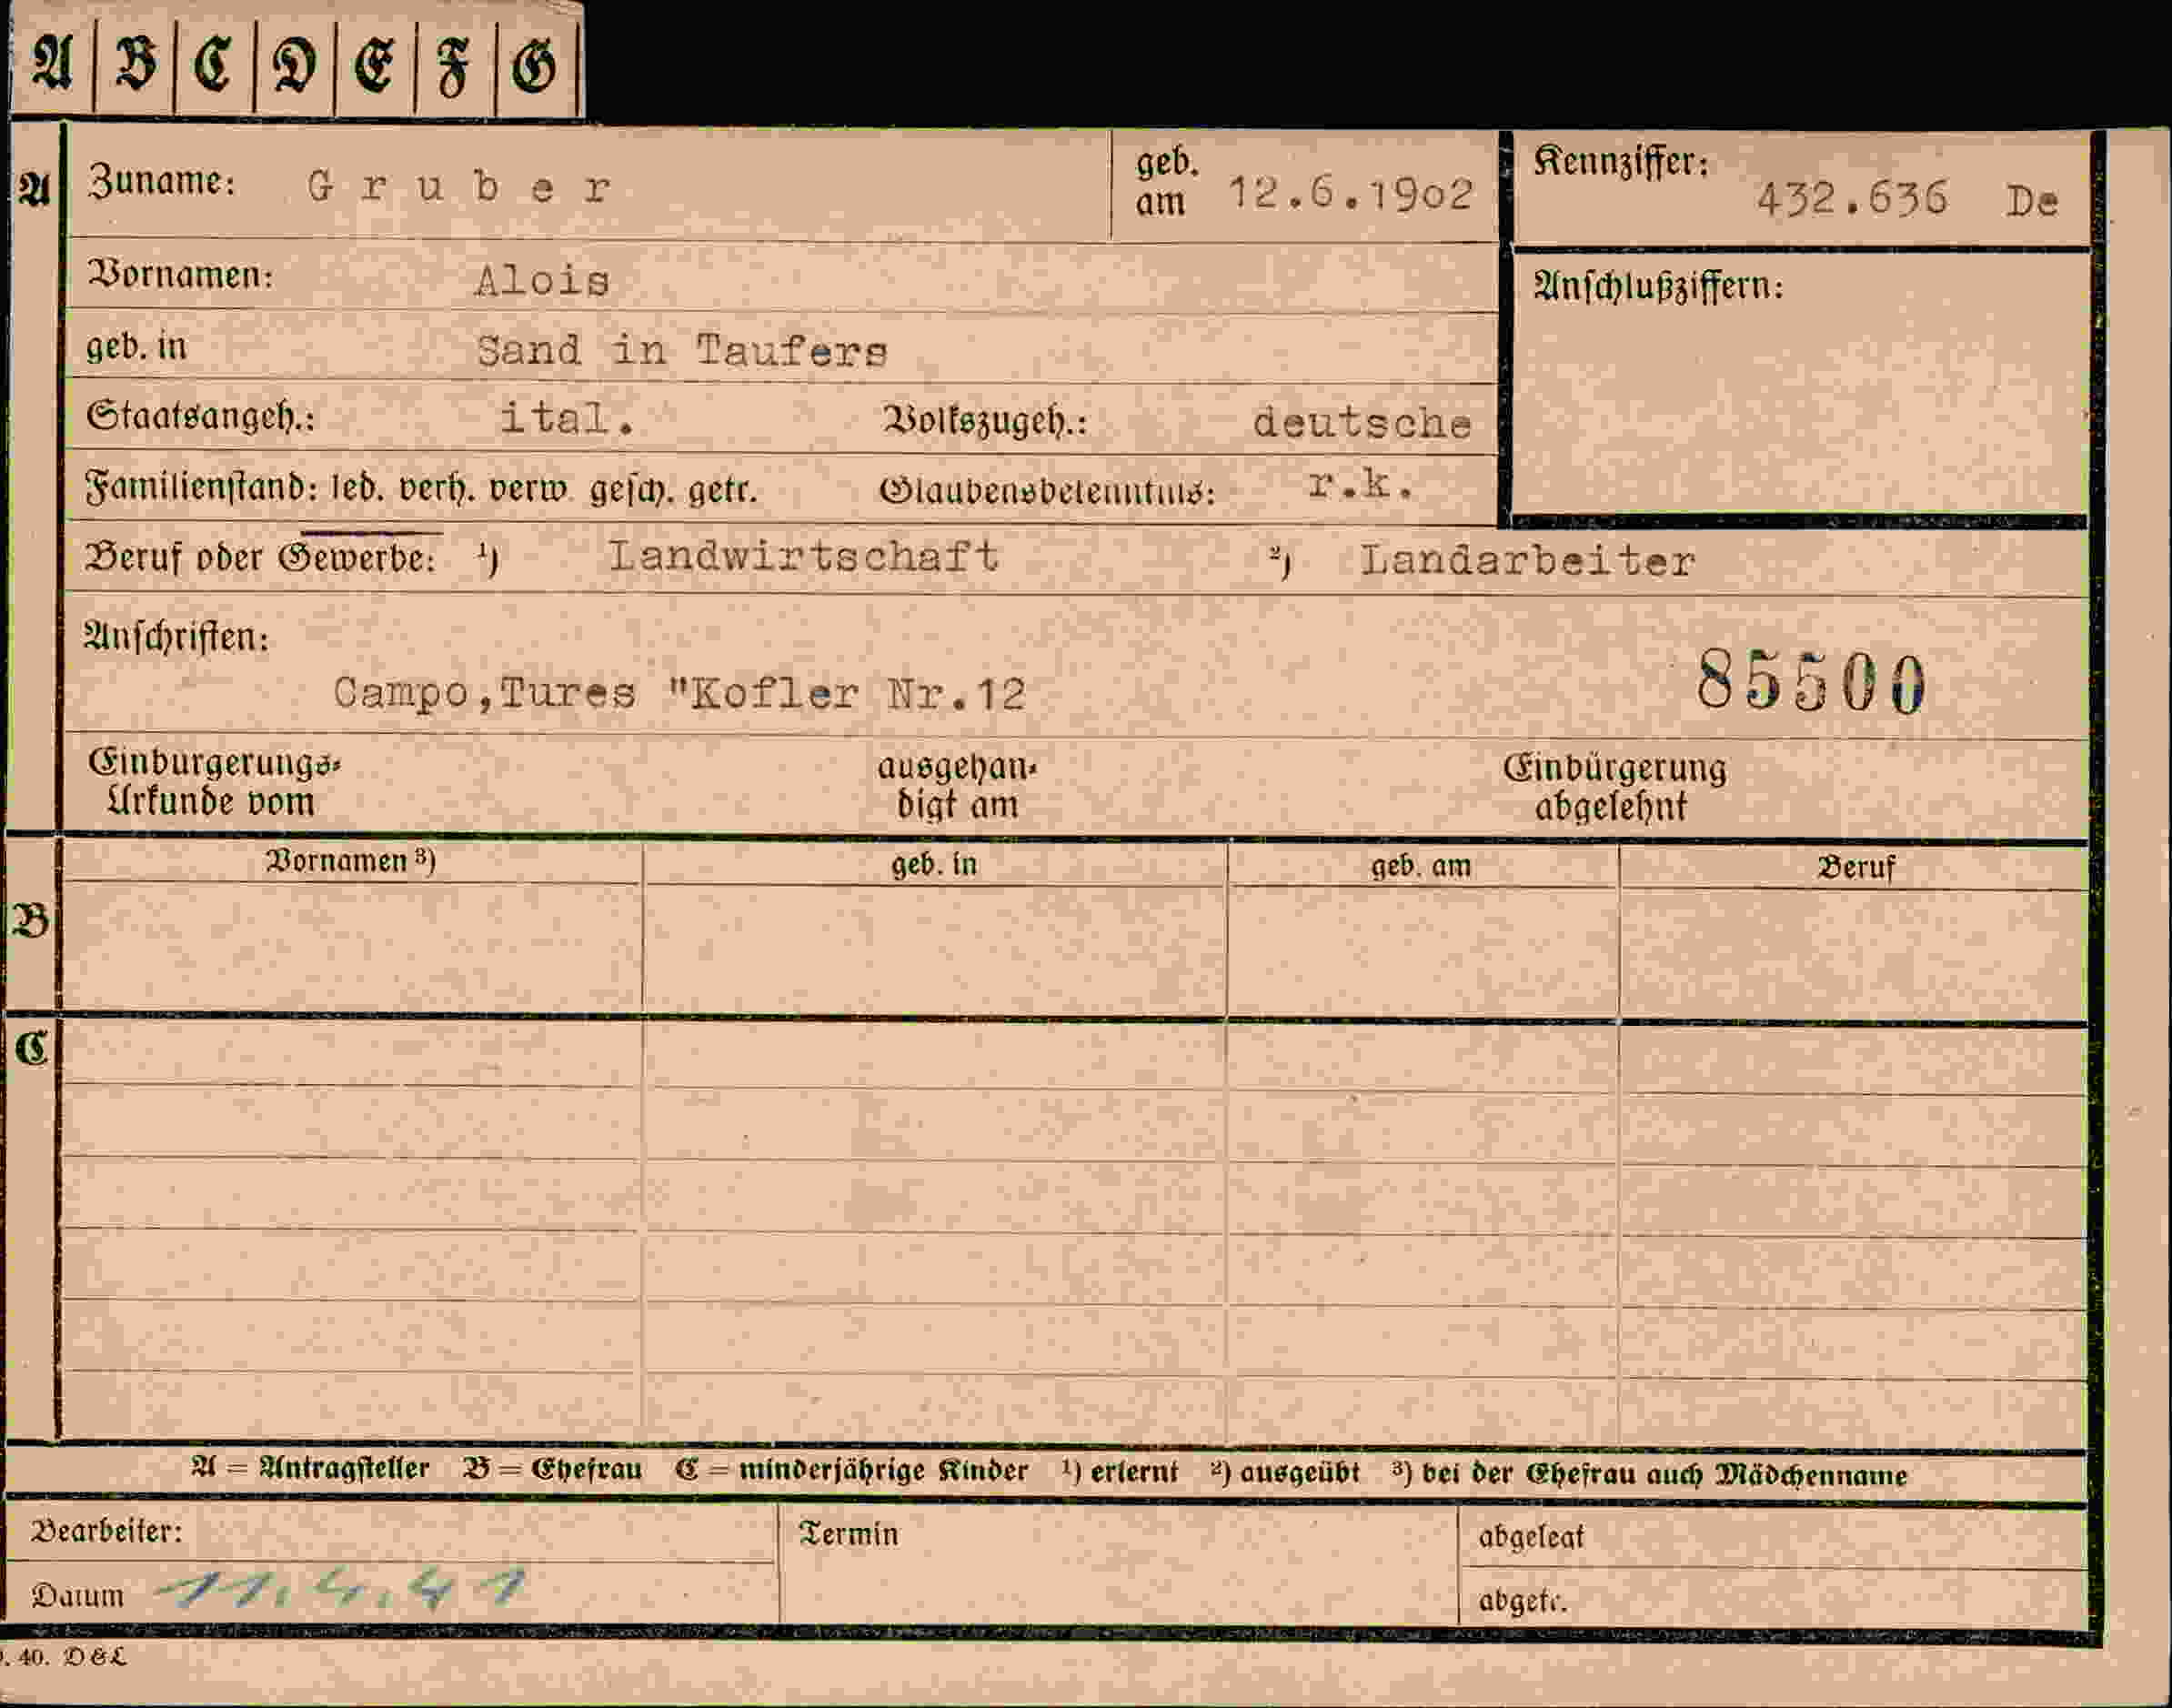 A B C D E F G
A Zuname: Gruber geb. am 12.6.1902 Kennziffer: 432.636 De
Vornamen: Alois Anschlußziffern:
geb. in Sand in Taufers
Staatsangeh.: ital. Volkszugeh.: deutsche
Familienstand: led. verh. verw. gesch. getr. Glaubensbekenntnis: r.k.
Beruf oder Gewerbe: ¹) Landwirtschaft ²) Landarbeiter
Anschriften:
Campo,Tures "Kofler Nr.12 85500
Einbürgerungs- ausgehän- Einbürgerung
Urkunde vom digt am abgelehnt
Vornamen ³) geb. in geb. am Beruf
B
C
A = Antragsteller B = Ehefrau C = minderjährige Kinder ¹) erlernt ²) ausgeübt ³) bei der Ehefrau auch Mädchenname
Bearbeiter: Termin abgelegt
Datum 11.4.41 abgetr.
. 40. D&L